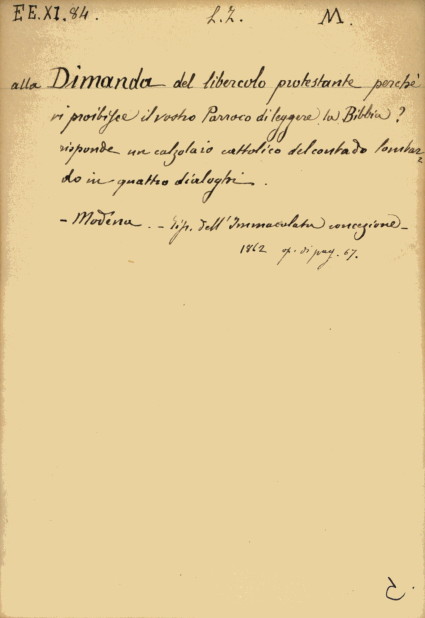 EE.XI.84. L.Z. M.
alla Dimanda del libercolo protestante perché
vi proibisce il vostro Parroco di leggere la Bibbia?
risponde un calzolaio cattolico del contado lombar=
do in quattro dialoghi.
- Modena. - Tip. dell'Immacolata concezione -
1862 op. di pag. 67.